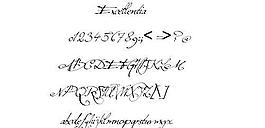 Excellentia
0123456789<=>?@
ABCDEFGHIJKLM
NOPQRSTUVWXYZ[]
abcdefghijklmnopqrstuvwxyz